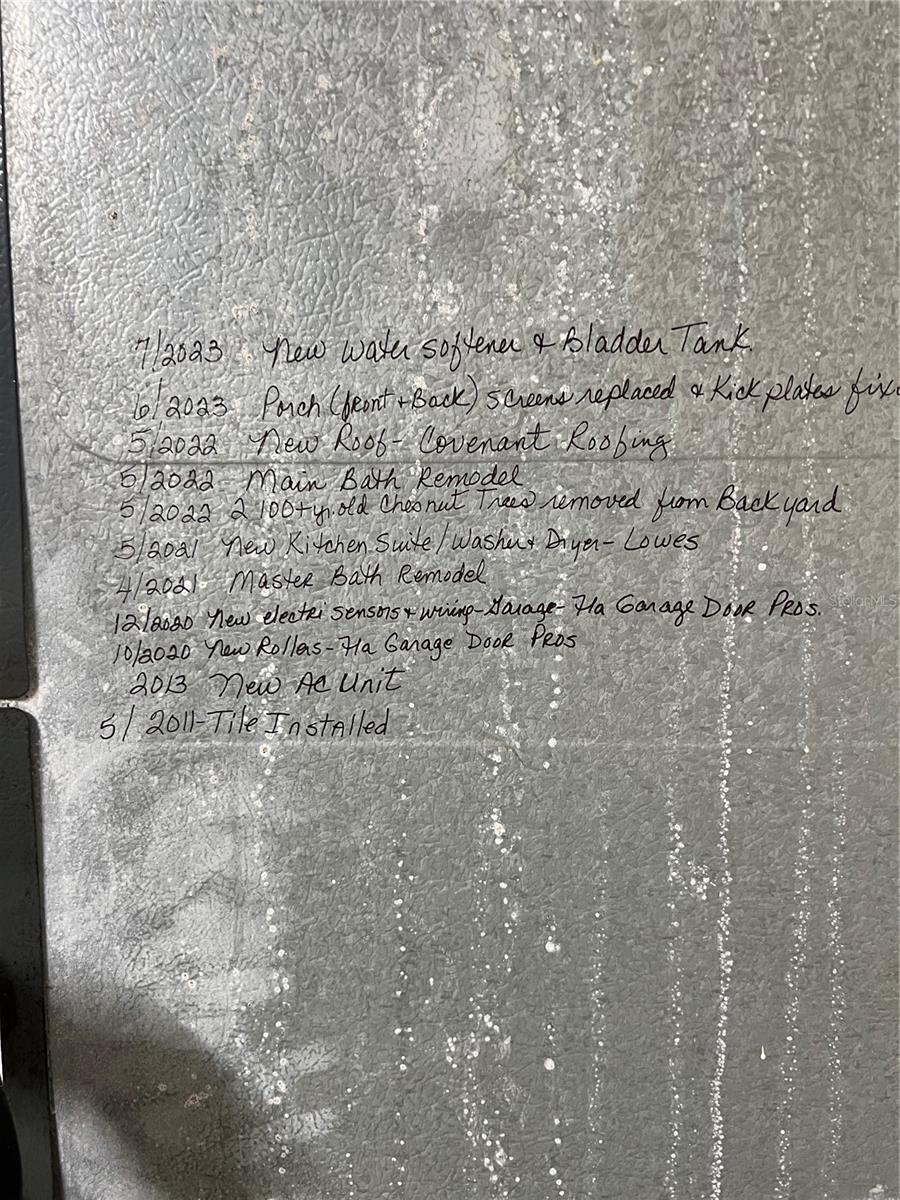 7/2023 New Water Softener & Bladder Tank.
6/2023 Porch (front + Back) screens replaced & Kick plates fix
5/2022 New Roof - Covenant Roofing
5/2022 Main Bath Remodel
5/2022 2 100+yr.old Chesnut Trees removed from Back yard
5/2021 New Kitchen Suite/Washer & Dryer - Lowes
4/2021 Master Bath Remodel
12/2020 New electri sensors + wiring - Garage - Fla Garage Door Pros.
StellarMLS
10/2020 New Rollers - Fla Garage Door Pros
2013 New AC Unit
5/ 2011 - Tile Installed